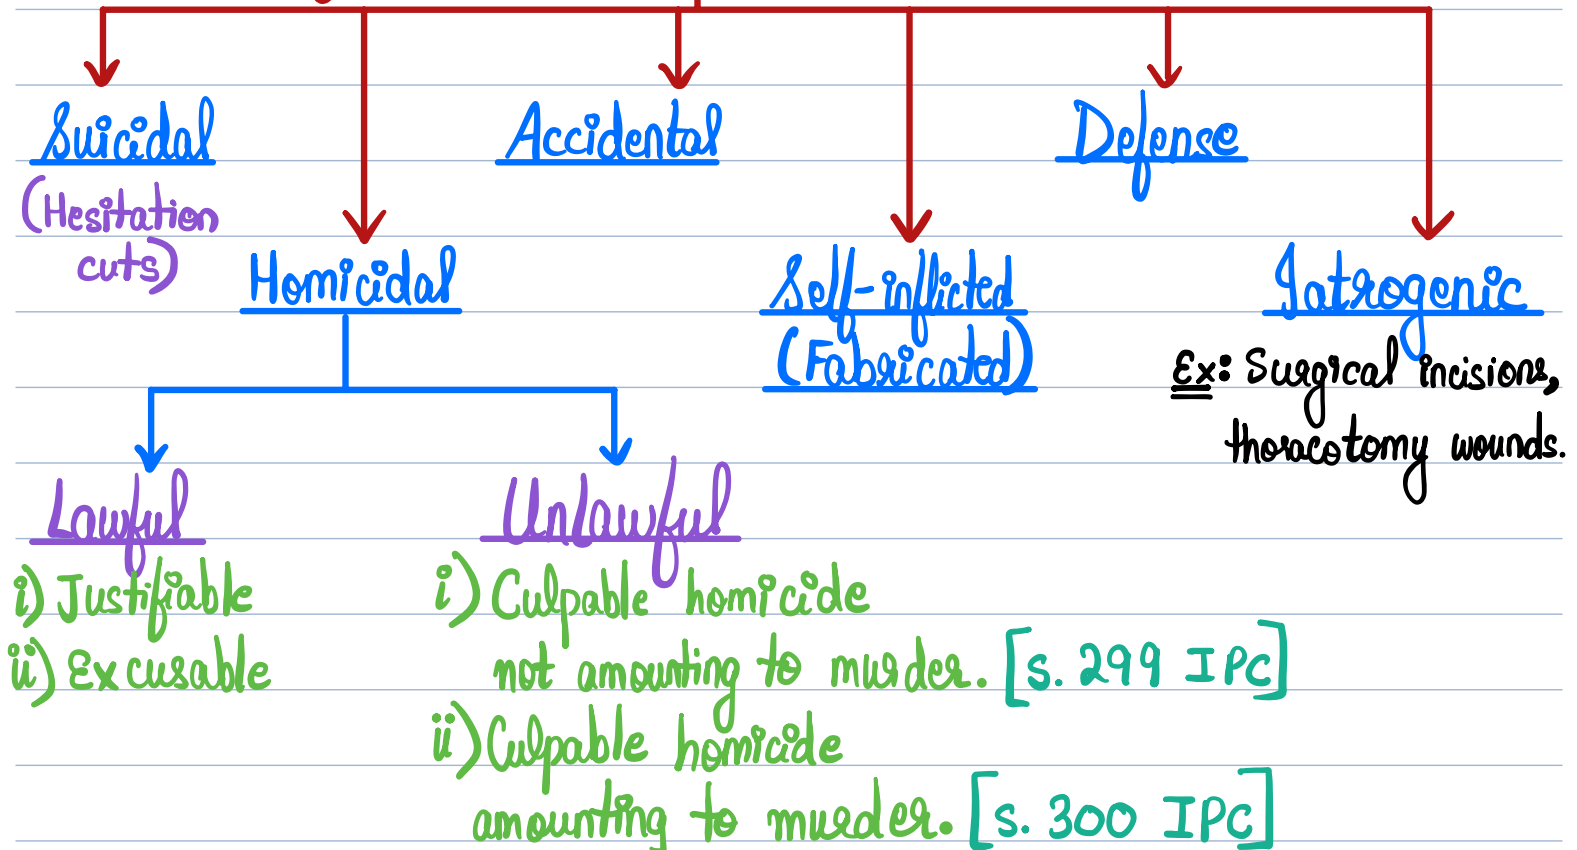 Suicidal
(Hesitation
cuts)
Accidental
Defense
Homicidal
Self-inflicted
(Fabricated)
Iatrogenic
Ex: Surgical incisions,
thoracotomy wounds.
Lawful
i) Justifiable
ii) Excusable
Unlawful
i) Culpable homicide
not amounting to murder. [s. 299 IPC]
ii) Culpable homicide
amounting to murder. [s. 300 IPC]